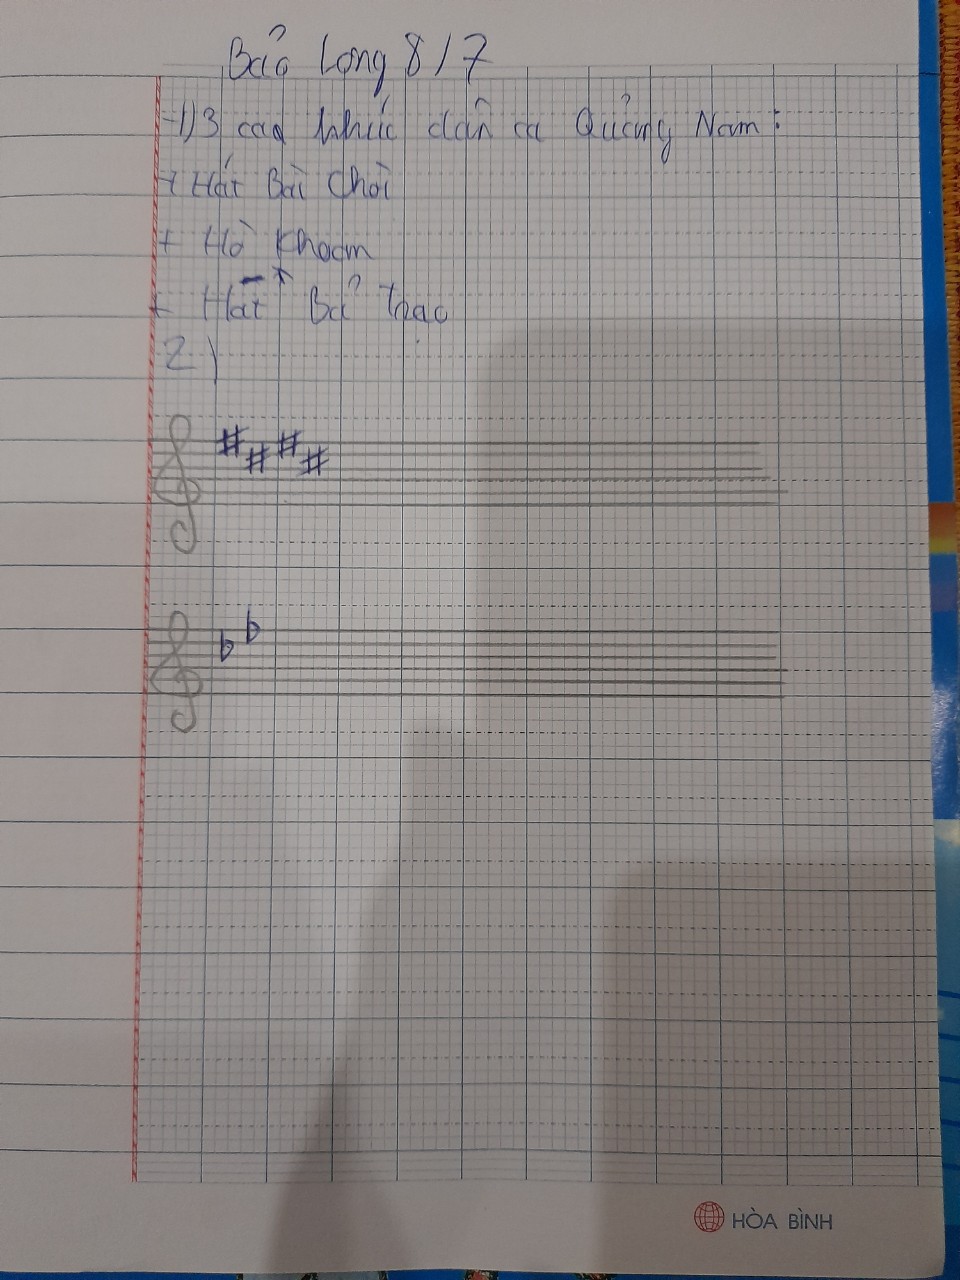 Bảo Long 8/7
1) 3 ca khúc dân ca Quảng Nam:
+ Hát Bài Chòi
+ Hò Khoan
+ Hát Bả Trạo
2)
HÒA BÌNH